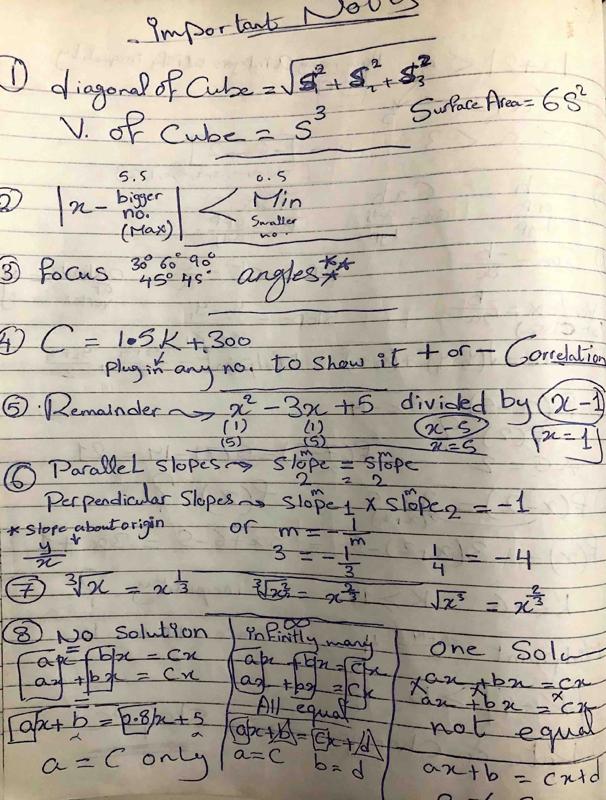 Important Notes
① diagonal of Cube = √S₁² + S₂² + S₃²
V. of Cube = S³
Surface Area = 6S²
② 5.5 0.5
|x - bigger no. (Max)| < Min Smaller no.
③ focus 30° 60° 90° angles***
45° 45°
④ C = 1.5K + 300
Plug in any no. to show it + or - Correlation
⑤ Remainder → x² - 3x + 5 divided by (x-1)
(1) (1) (x-5) x=1
(5) (5) x=5
⑥ Parallel slopes → slope = slope
m m
2 = 2
Perpendicular Slopes → slope₁ × slope₂ = -1
m m
* slope about origin or m = -1/m
y/x 3 = -1/3 1/4 = -4
⑦ ∛x = x^1/3 ∛x² = x^2/3 √x³ = x^2/3
⑧ No Solution
ax + bx = cx
ax + bx = cx
ax + b = 0.8x + 5
a = c only
∞
infinitly many
ax + bx = cx
ax + bx = cx
All equal
ax + b = cx + d
a = c b = d
one Solu
ax + bx = cx
ax + bx = cx
not equal
ax + b = cx + d